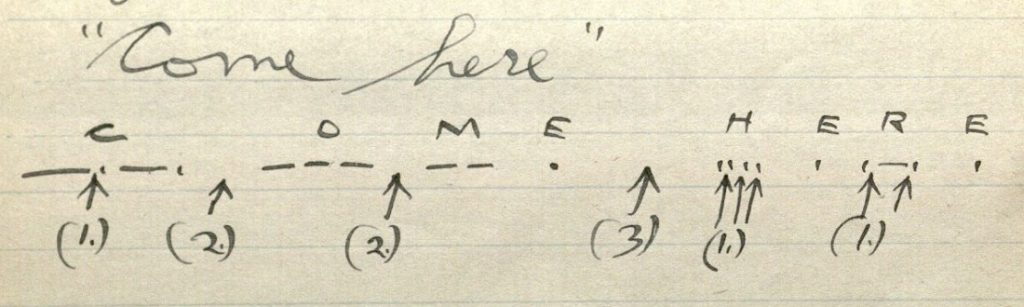 "Come here"
C O M E H E R E
—·—· ——— —— · ···· · ·—· ·
(1.) (2.) (2.) (3) (1.) (1.)